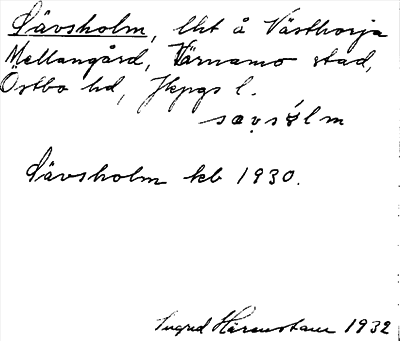 Sävsholm, lht å Västhorja
Mellangård, Värnamo stad,
Östbo hd, Jkpgs l.
sævs`ɷlm
Sävsholm kb 1930.
Ingrid Härenstam 1932